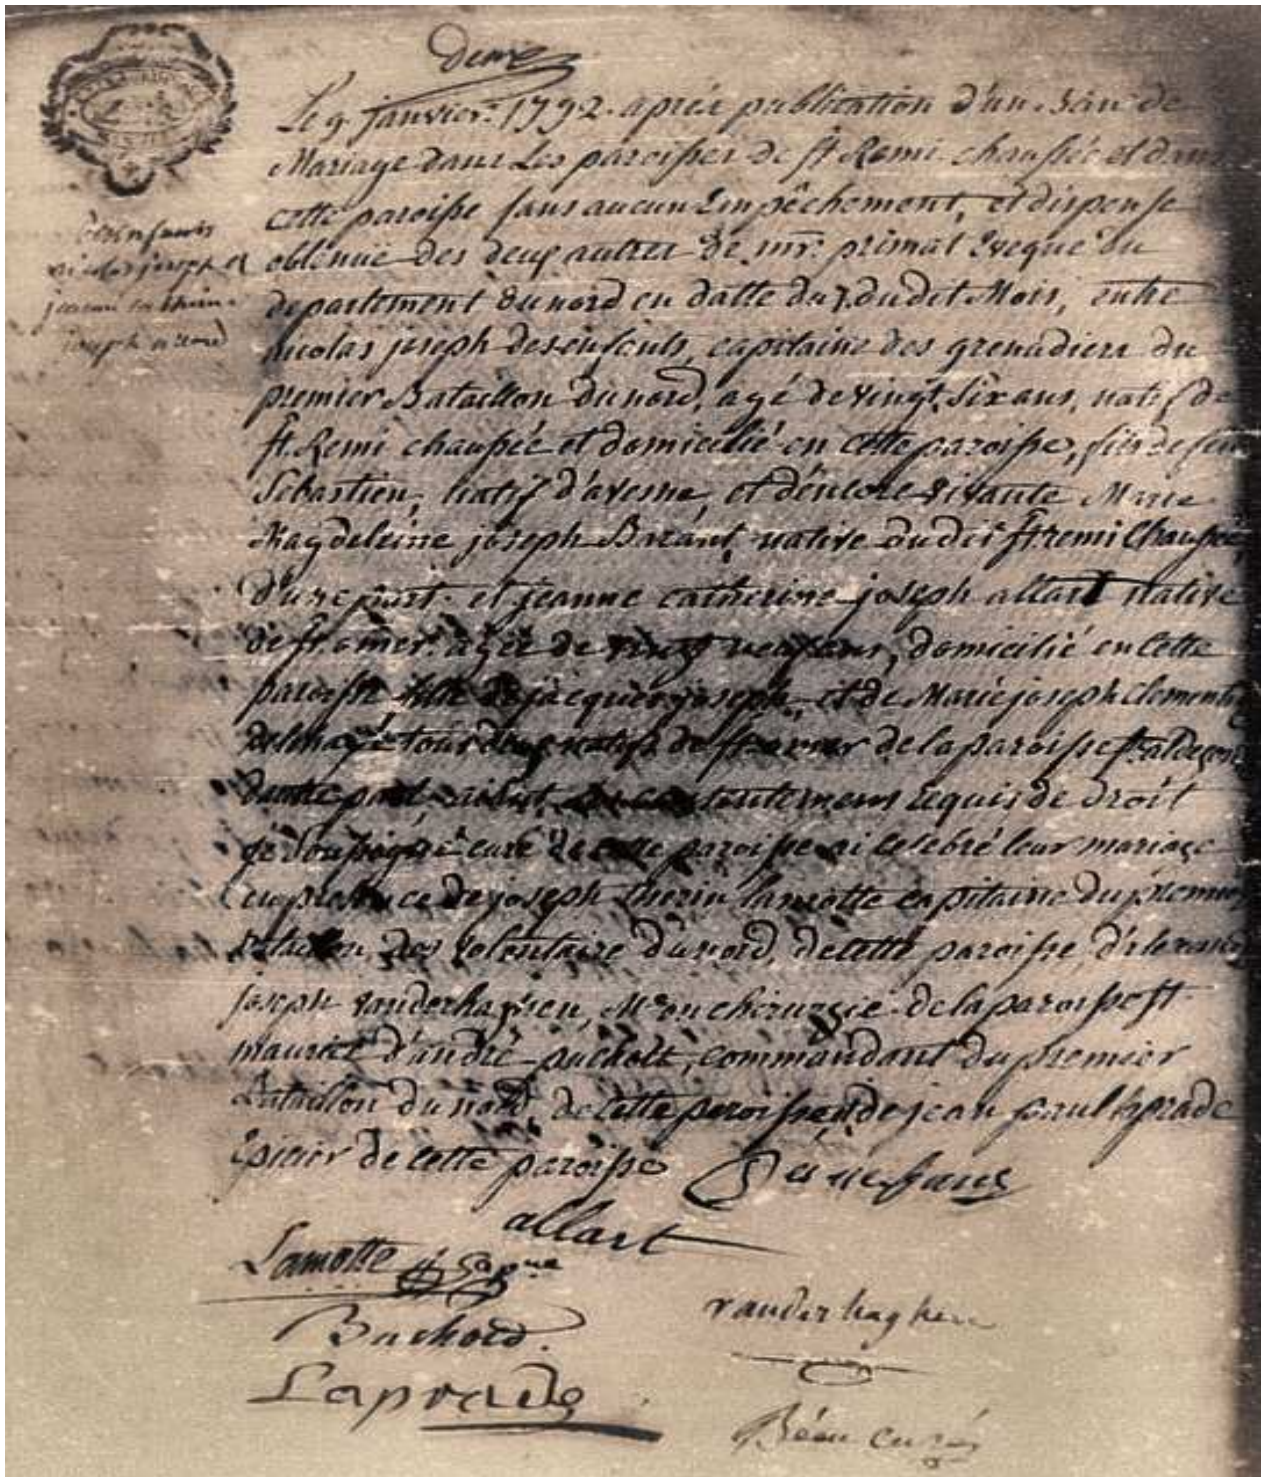 deux
Le 9 janvier 1792 après publication d'un ban de
Mariage dans Les paroisses de st Remi chaussée et dans
cette paroisse sans aucun Empêchement, et dispense
obtenuë des deux autres de mr. primat Eveque du
departement du nord en datte du 7 dudet Mois, entre
nicolas joseph desenfants, capitaine des grenadiers du
premier Bataillon du nord, agé de vingt six ans, natif de
st Remi chaussée et domicilié en cette paroisse, fils de feu
Sebastien, natif d'avesne, et d'encore vivante Marie
Magdeleine joseph Bazant, native dudit st remi Chaussée
d'une part. et jeanne catherine joseph allart native
de st omer agée de vingt neuf ans, domicilié en cette
paroisse fille de jacques joseph, et de Marie joseph Clementine
tous deux natifs de st omer de la paroisse
d'autre part, requis de droit
je soussigné curé de cette paroisse ai celebré leur mariage
en presence de joseph lamotte capitaine du premier
Bataillon des volontaire du nord, de cette paroisse,
joseph vanderhaghen, Me en chirurgie de la paroisse st
maurice d'andré commandant du premier
Bataillon du nord, de cette paroisse, de jean paul laprade
Epicier de cette paroisse Desenfans
allart
Lamotte
vanderhaghen
Bachord
Laprade
curé
desenfants
nicolas joseph et
jeanne catherine
joseph